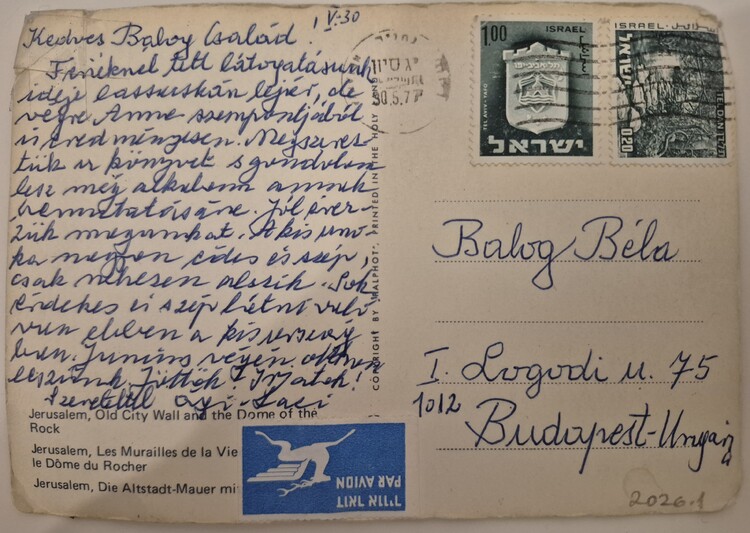 V-30
Kedves Balog Család!
Feriéknél tett látogatásunk
ideje lassuskán lejár, de
végre Anna szempontjából
is eredményesen. Megszerez-
tük a könyvet s gondolom
lesz még alkalom annak
bemutatására. Jól érez-
zük magunkat. A kis uno-
ka nagyon édes és szép,
csak nehezen alszik. Sok
érdekes és szép látni való
van ebben a kis ország
ban. Junius végén otthon
leszünk. Jöttök? Irjatok!
Szeretettel Ági-Laci
Jerusalem, Old City Wall and the Dome of the
Rock
Jerusalem, Les Murailles de la Vie
le Dôme du Rocher
Jerusalem, Die Altstadt-Mauer mi
דואר אויר
PAR AVION
COPYRIGHT BY "PALPHOT", PRINTED IN THE HOLY LAND
30.5.77
1.00 ISRAEL
תל-אביב-יפו
TEL AVIV - YAFO
ישראל
ISRAEL
ישראל
0.20
Balog Béla
I. Logodi u. 75
1012
Budapest-Ungarn
2026.1